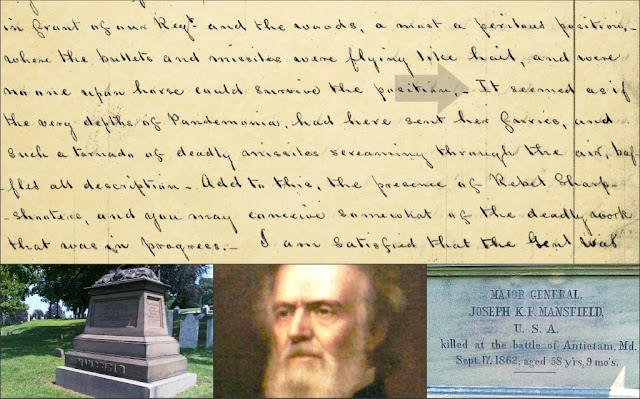 in front of our Regt and the woods, a most a perilous position,-
where the bullets and missiles were flying like hail, and were
no one upon horse could survive the position,- It seemed as if
the very depths of Pandemonia, had here sent her furries, and
such a tornado of deadly missiles screaming through the air, baf-
fles all description- Add to this, the presence of Rebel Sharp-
-shooters, and you may conceive somewhat of the deadly work
that was in progress.- I am satisfied that the Genl was
MANSFIELD
MAJOR GENERAL,
JOSEPH K. F. MANSFIELD,
U. S. A.
killed at the battle of Antietam, Md.
Sept. 17, 1862, aged 58 yrs, 9 mo's.